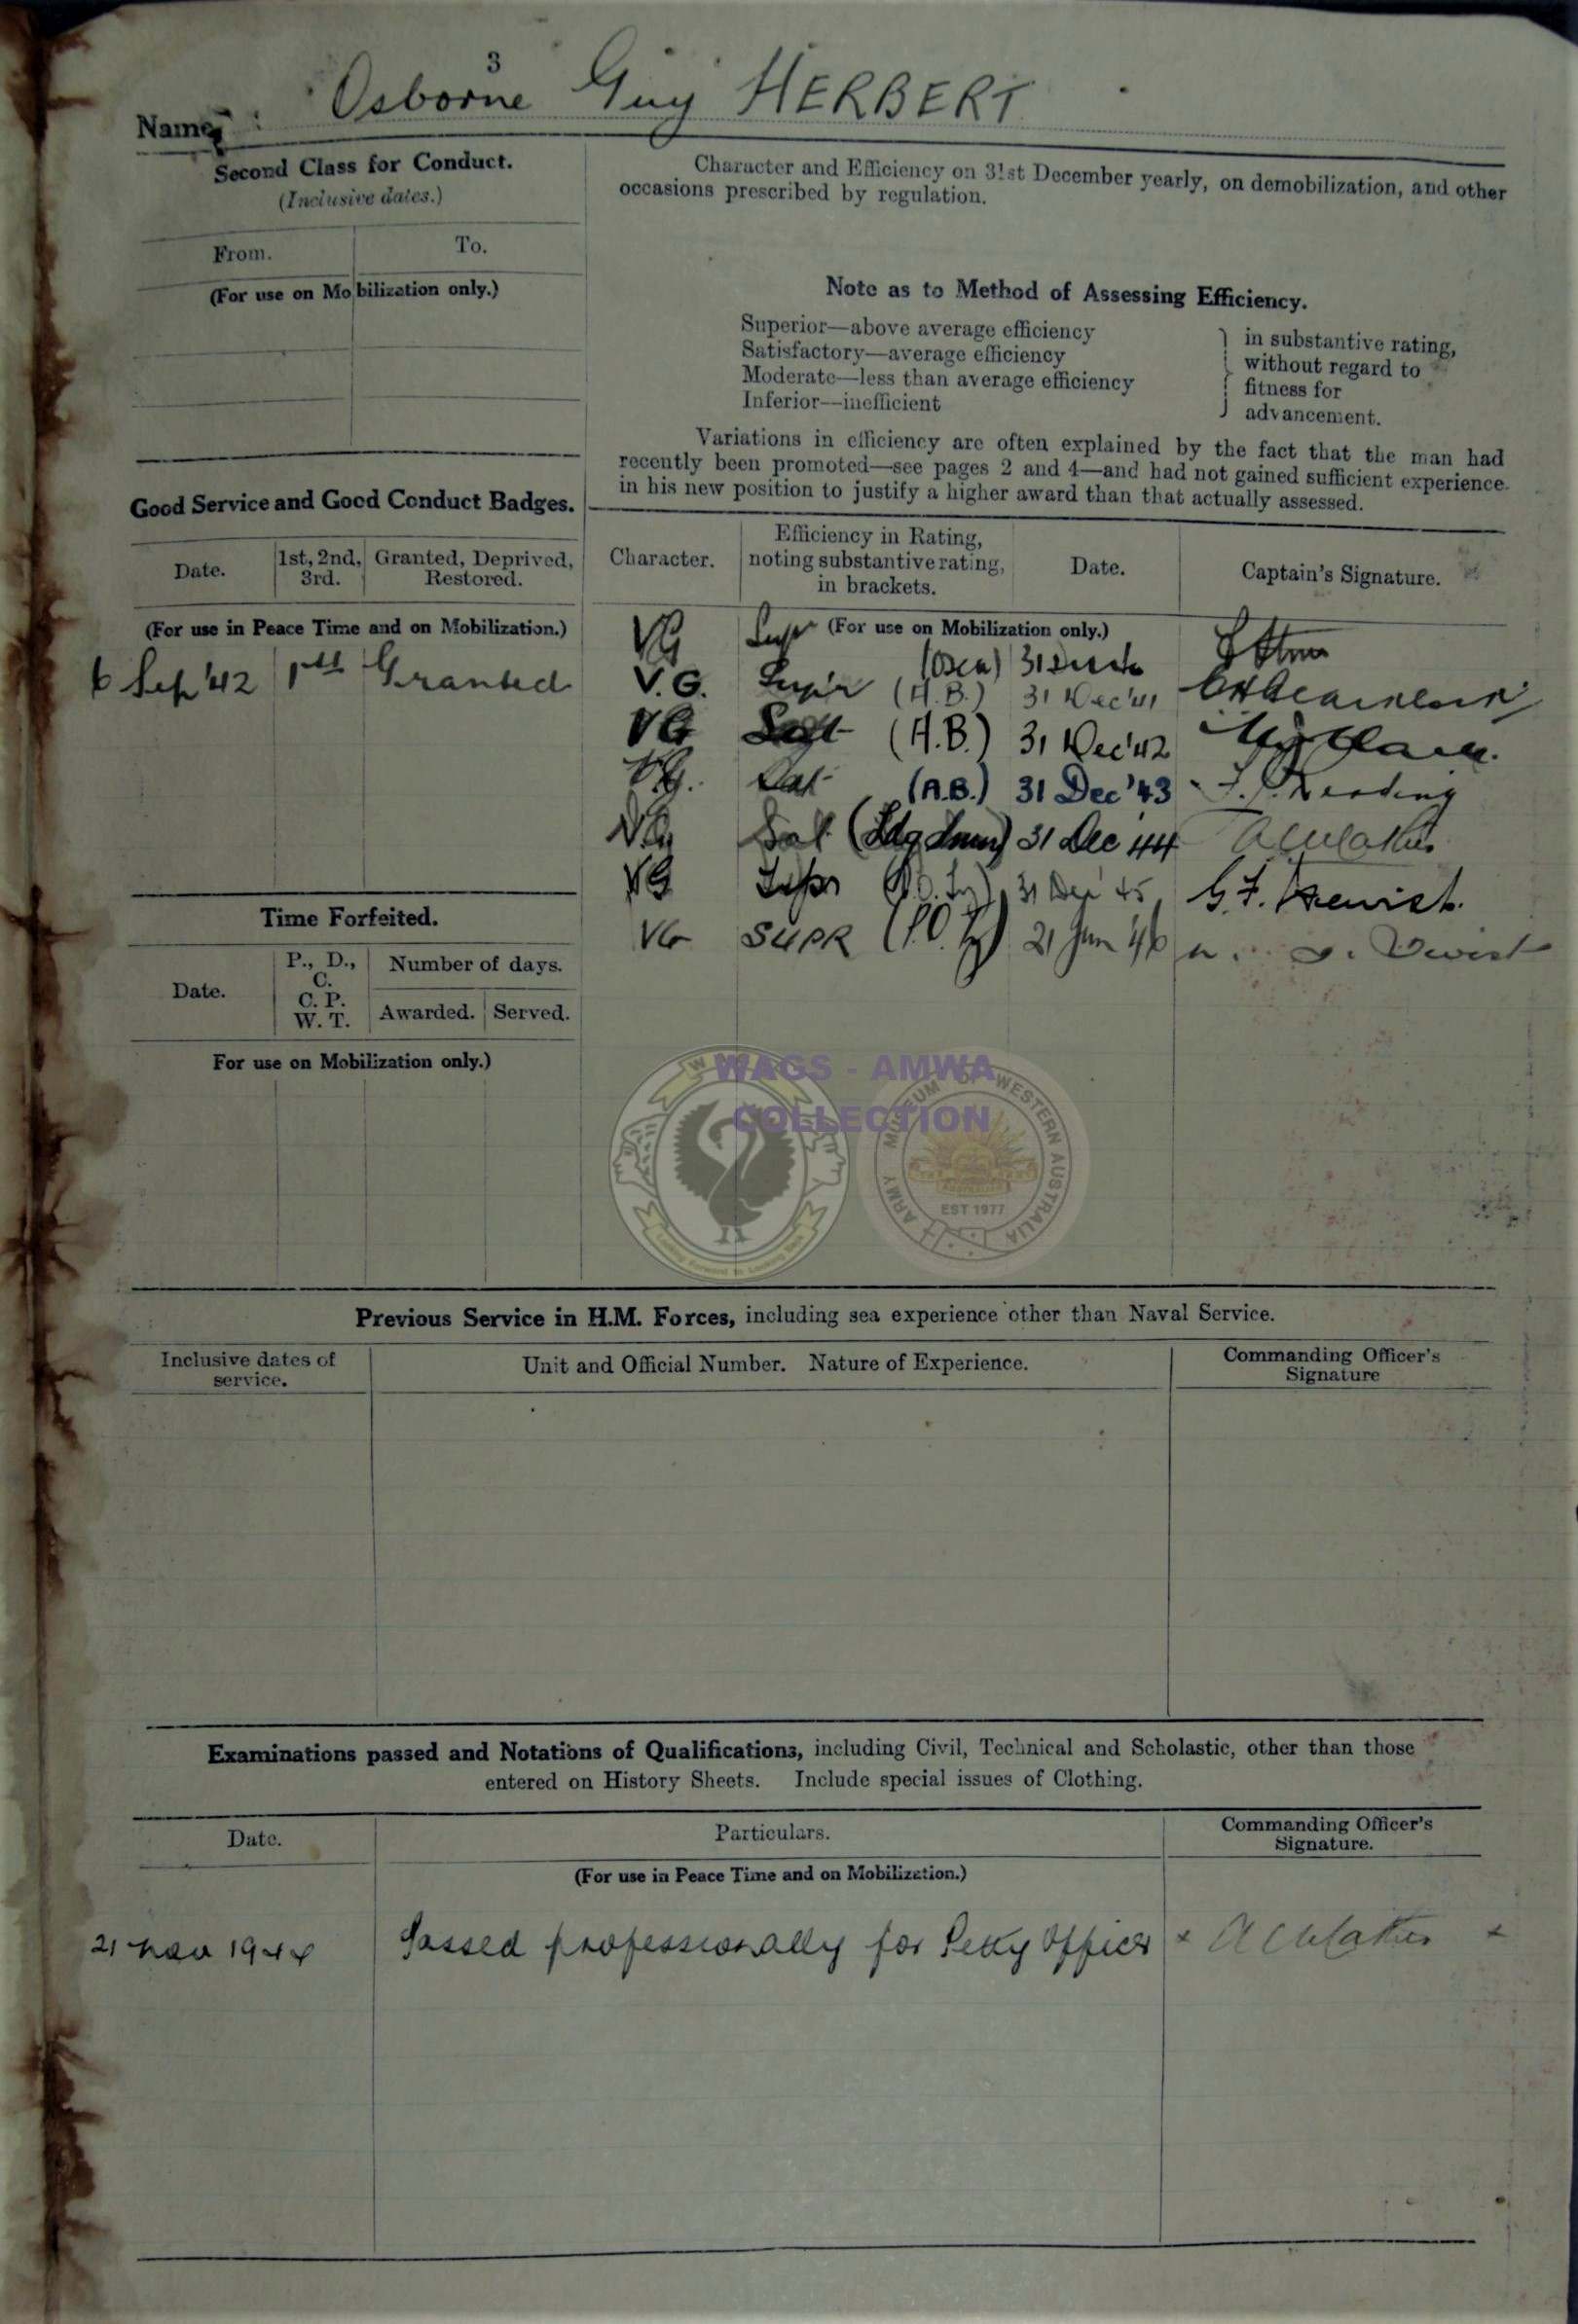 3
Name : Osborne Guy HERBERT
Second Class for Conduct.
(Inclusive dates.)
From. To.
(For use on Mobilization only.)
Character and Efficiency on 31st December yearly, on demobilization, and other
occasions prescribed by regulation.
Note as to Method of Assessing Efficiency.
Superior—above average efficiency
Satisfactory—average efficiency
Moderate—less than average efficiency
Inferior—inefficient
in substantive rating,
without regard to
fitness for
advancement.
Variations in efficiency are often explained by the fact that the man had
recently been promoted—see pages 2 and 4—and had not gained sufficient experience
in his new position to justify a higher award than that actually assessed.
Good Service and Good Conduct Badges.
Date. 1st, 2nd, 3rd. Granted, Deprived, Restored.
(For use in Peace Time and on Mobilization.)
6 Sep '42 1st Granted
Character. Efficiency in Rating, noting substantive rating, in brackets. Date. Captain's Signature.
(For use on Mobilization only.)
VG Supr 31
V.G. Supr (A.B.) 31 Dec '41
VG Sat (A.B.) 31 Dec '42
VG. Sat (A.B.) 31 Dec '43
VG Sat (Ldg Smn) 31 Dec '44
VG Supr (P.O. Ty) 31 Dec 45 G.F.
VG SUPR (P.O. Ty) 21 Jan '46
Time Forfeited.
Date. P., D., C. C. P. W. T. Number of days.
Awarded. Served.
For use on Mobilization only.)
WAGS - AMWA
COLLECTION
ARMY MUSEUM OF WESTERN AUSTRALIA
EST 1977
Previous Service in H.M. Forces, including sea experience other than Naval Service.
Inclusive dates of service. Unit and Official Number. Nature of Experience. Commanding Officer's Signature
Examinations passed and Notations of Qualifications, including Civil, Technical and Scholastic, other than those
entered on History Sheets. Include special issues of Clothing.
Date. Particulars. Commanding Officer's Signature.
(For use in Peace Time and on Mobilization.)
21 Nov 1944 Passed professionally for Petty Officer